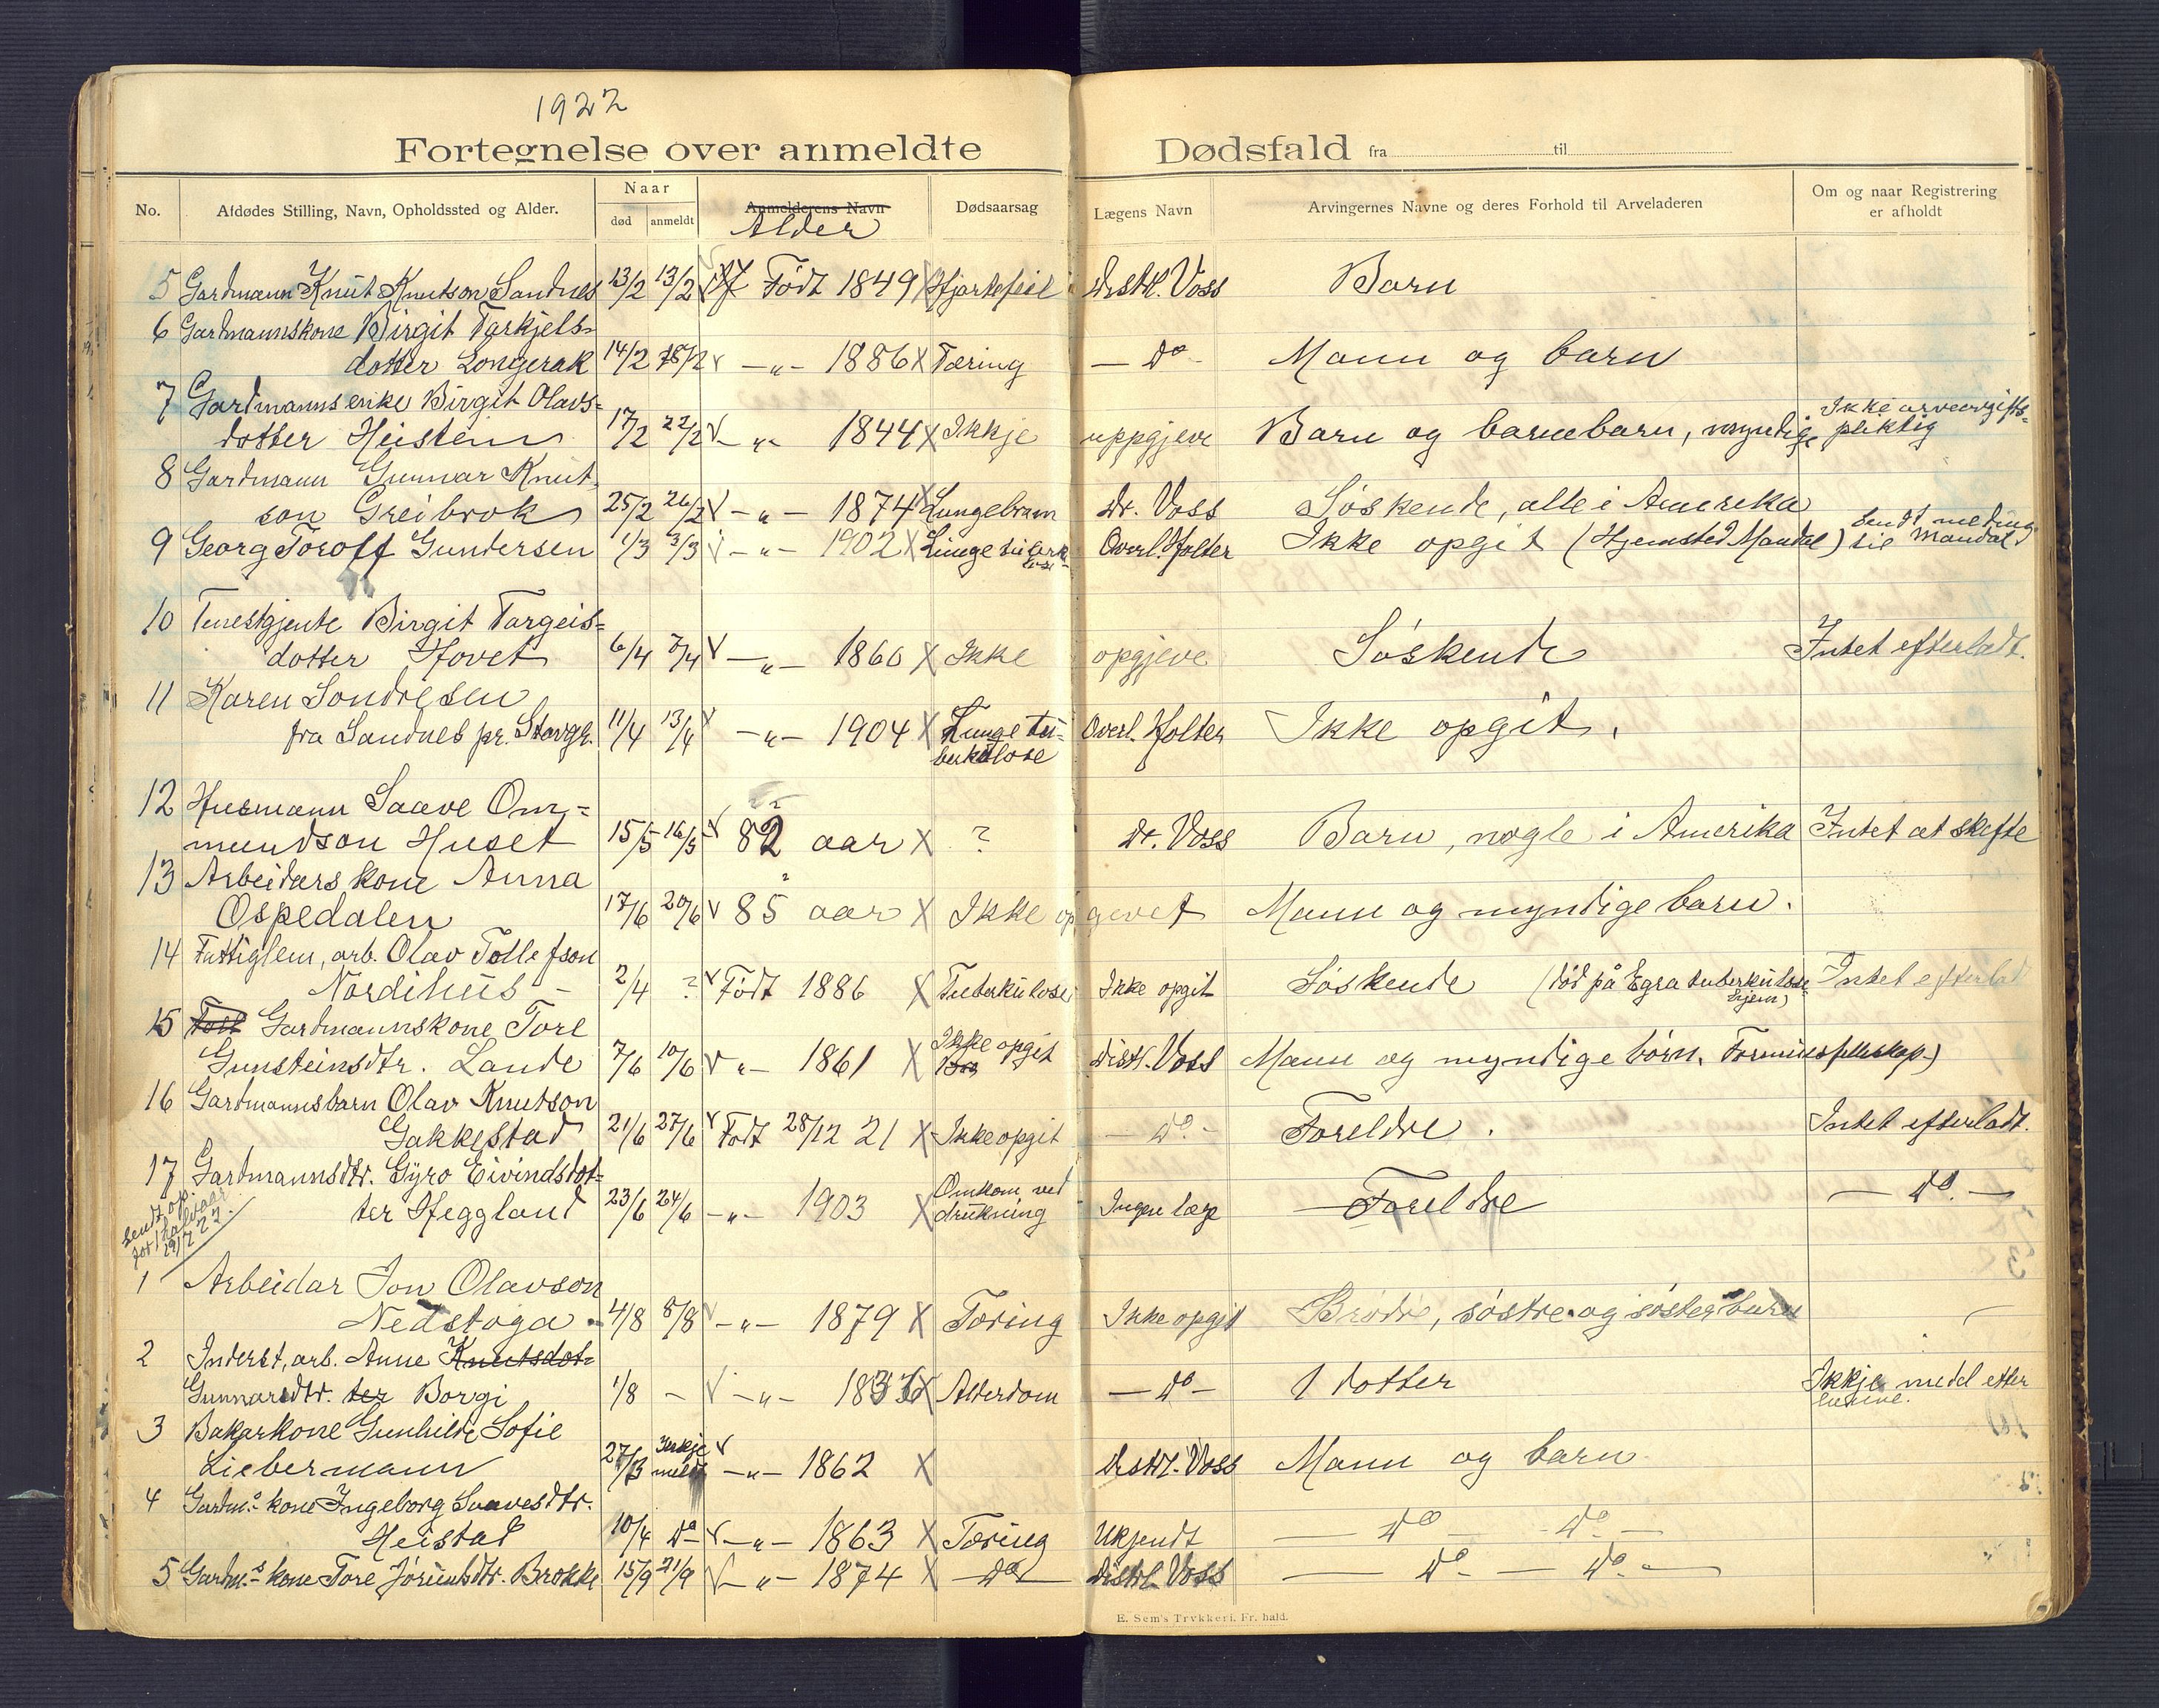 1922
Fortegnelse over anmeldte Dødsfald fra til
No. Afdødes Stilling, Navn, Opholdssted og Alder. Naar død anmeldt Anmelderens Navn Alder Dødsaarsag Lægens Navn Arvingernes Navne og deres Forhold til Arveladeren Om og naar Registrering er afholdt
5 Gardmann Knut Knutson Sandnes 13/2 13/2 Født 1849 X Hjartefeil Distl. Voss Barn
6 Gardmannskone Birgit Tarkjels-
dotter Longerak 14/2 18/2 -„- 1886 X Tæring - do - Mann og barn
7 Gardmannsenke Birgit Olavs-
dotter Heistein 17/2 22/2 -„- 1844 X Ikkje uppgjeve Barn og barnebarn, myndige Ikke arveavgifts-
pliktig
8 Gardmann Gunnar Knut-
son Greibrok 25/2 26/2 -„- 1874 X Lungebram Dr. Voss Søskende, alle i Amerika
9 Georg Toroff Gundersen 1/3 3/3 -„- 1902 X Lungetuberk- Overl. Holter Ikke opgit (Hjemsted Mandal) Sendt melding
til Mandal
10 Tenestgjente Birgit Targeis-
dotter Hovet 6/4 7/4 -„- 1860 X Ikke opgjeve Søskende Intet efterladt.
11 Karen Sondresen
fra Sandnes pr. Stavgr. 11/4 13/4 -„- 1904 X Lungetu-
berkulose Overl. Holter Ikke opgit.
12 Husmann Saave Om-
mundson Huset 15/5 16/5 82 aar X ? Dr. Voss Barn, nogle i Amerika Intet at skifte
13 Arbeidarskone Anna
Ospedalen 17/6 20/6 85 aar X Ikke opgevet Mann og myndige barn.
14 Fattiglem, arb. Olav Tollefson
Nordihus - 2/4 ? Født 1886 X Tuberkulose Ikke opgit Søskende (død på Egra tuberkulose-
hjem) Intet efterlat
15 Gardmannskone Tore
Gunsteinsdtr. Lande 7/6 10/6 „- 1861 X Ikke opgit Distl. Voss Mann og myndige børn. Formuesfelleskap.)
16 Gardmannsbarn Olav Knutson
Gakkestad 21/6 27/6 Født 28/12 21 X Ikke opgit - do - Foreldre. Intet efterladt.
17 Gardmannsdtr. Gyro Eivindsdot-
ter Heggland 23/6 24/6 -„- 1903 X Omkom ved
drukning Ingen læge Foreldre - do. -
Sendt op.
for 1 halvaar
29/7 22.
1 Arbeidar Jon Olavson
Nedstoga 4/8 8/8 -„- 1879 X Tæring Ikke opgit Brødre, søstre og søsterbarn
2 Inderst, arb. Anne Knutsdot-
Gunnarsdtr. ter Borgi 1/8 - -„- 1836 X Alderdom - do - 1 dotter Ikkje medel etter
3 Bakarkone Gunhilde Sofie
Liebermann 27/3 Ikkje
meldt -„- 1862 X Distl. Voss Mann og barn
4 Gardm.s kone Ingeborg Saavesdtr.
Heistad 10/4 do -„- 1863 X Tæring Ukjendt - do - - do. -
5 Gardm.s kone Tore Jørundsdtr. Brokke 15/9 21/9 -„- 1874 X - do - Distl. Voss - do - - do. -
E. Sem's Trykkeri, Fr. hald.